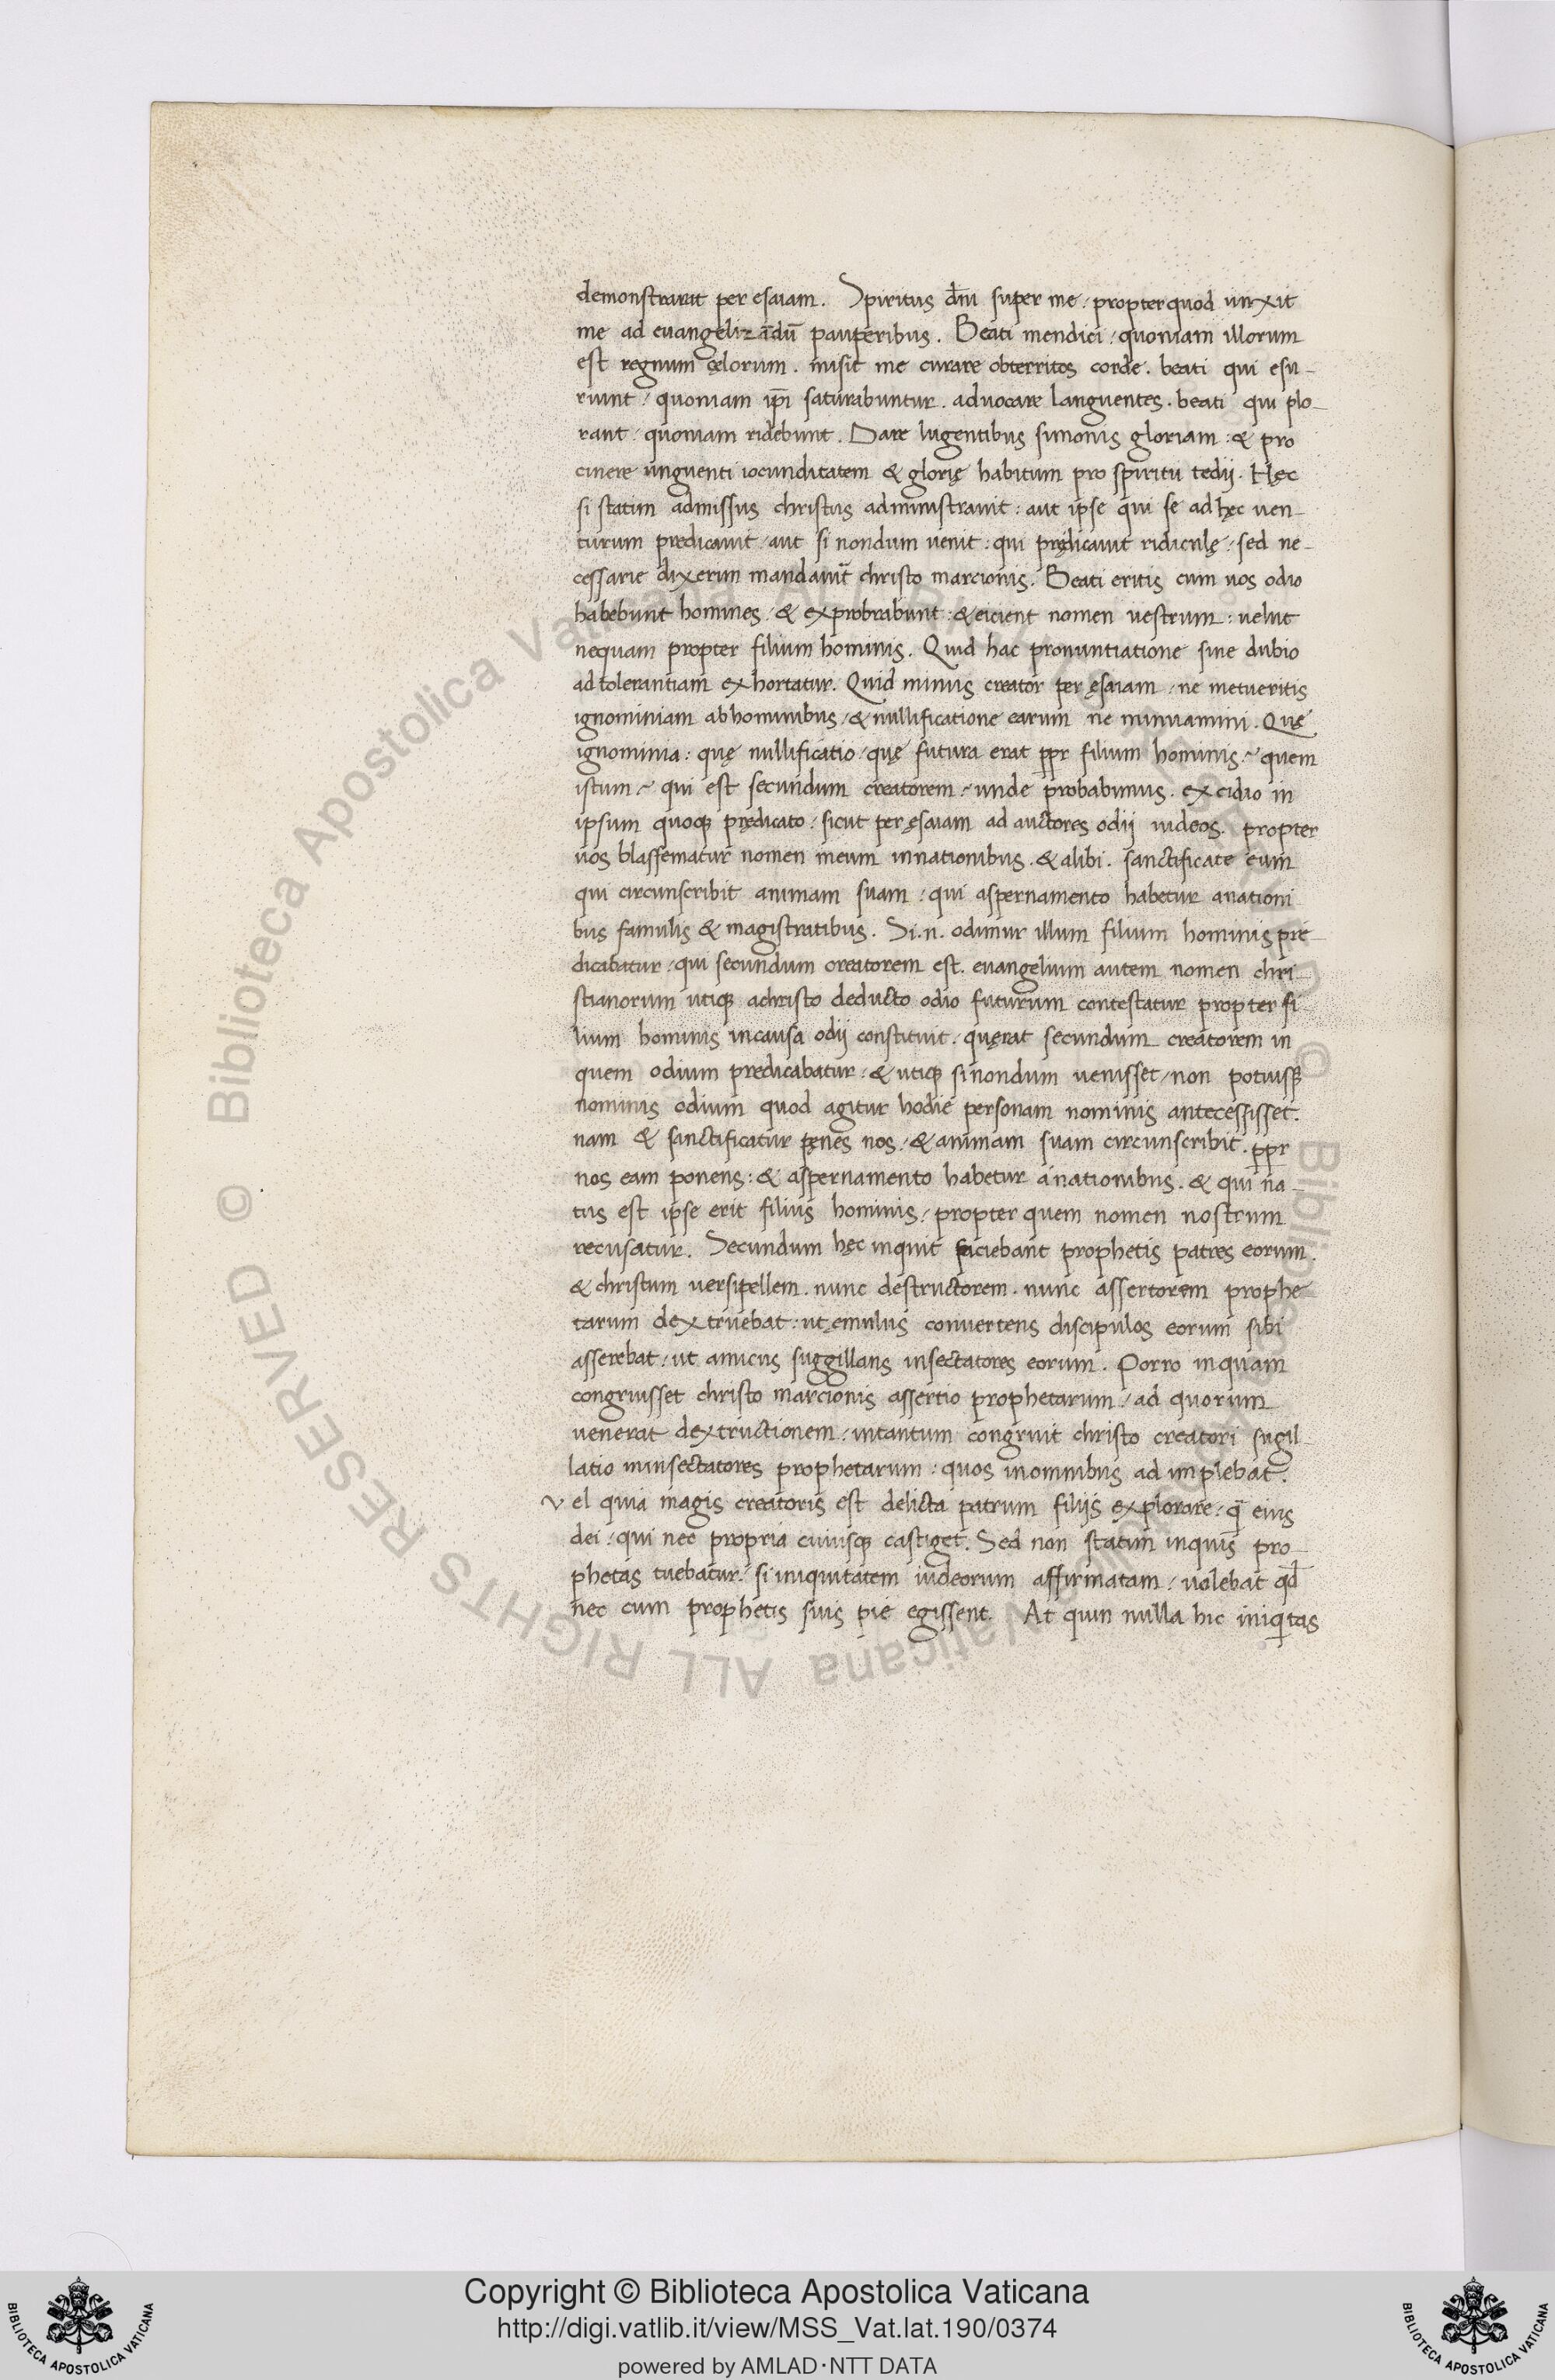 demonstrarat per esaiam. Spiritus dm̄ super me, propter quod unxit
me ad euangeliz̄adū pauperibus. Beati mendici, quoniam illorum
est regnum cęlorum. misit me curare obterritos corde. beati qui esu-
riunt, quoniam ip̄i saturabuntur. aduocare languentes. beati qui plo-
rant, quoniam ridebunt. Dare lugentibus simonis gloriam: & pro
cinere unguenti iocunditatem & glorię habitum pro spiritu tedij. Hęc
si statim admissus christus administrauit: aut ipse qui se ad hęc uen-
turum predicauit, aut si nondum uenit: qui prędicauit ridiculę, sed ne-
cessarie dixerim mandauit̄ christo marcionis. Beati eritis cum uos odio
habebunt homines, & exprobrabunt: & eicient nomen uestrum: uelut
nequam propter filium hominis. Quid hac pronuntiatione sine dubio
ad tolerantiam exhortatur. Quid minus creator per ęsaiam, ne metueritis
ignominiam ab hominibus, & nullificatione earum ne minuamini. Quę
ignominia: quę nullificatio, quę futura erat ppr filium hominis, quem
istum, qui est secundum creatorem, unde probabimus. excidio in
ipsum quoq; prędicato, sicut per ęsaiam ad auctores odij iudeos. propter
uos blassematur nomen meum in nationibus. & alibi. sanctificate eum
qui circunscribit animam suam, qui aspernamento habetur a nationi
bus famulis & magistratibus. Si .n. odimur illum filium hominis pre-
dicabatur, qui secundum creatorem est. euangelium autem nomen chri-
stianorum utiq; a christo deducto odio futurum contestatur propter fi-
lium hominis in causa odij constituit, quęrat secundum creatorem in
quem odium predicabatur, & utiq; si nondum uenisset, non potuissq;
nominis odium quod agitur hodie personam nominis antecessisset.
nam & sanctificatur pęnes nos, & animam suam circunscribit. ppr
nos eam ponens: & aspernamento habetur a nationibus. & qui na-
tus est ipse erit filius hominis, propter quem nomen nostrum
recusatur. Secundum hęc inquit faciebant prophetis patres eorum.
& christum uersipellem. nunc destructorem. nunc assertorem prophe-
tarum dextruebat: ut ęmulus conuertens discipulos eorum sibi
asserebat, ut amicus suggillans insectatores eorum. Porro inquam
congruisset christo marcionis assertio prophetarum, ad quorum
uenerat dextructionem, intantum congruit christo creatori sugil-
latio in insectatores prophetarum, quos in omnibus ad implebat.
vel quia magis creatoris est delicta patrum filijs explorare, q̄ eius
dei, qui nec propria cuiusq; castiget. Sed non statim inquis pro-
phetas tuebatur, si iniquitatem iudeorum affirmatam, uolebat qd̄
nec cum prophetis suis pie egissent. At quin nulla hic iniqitas
Copyright © Biblioteca Apostolica Vaticana
http://digi.vatlib.it/view/MSS_Vat.lat.190/0374
powered by AMLAD·NTT DATA